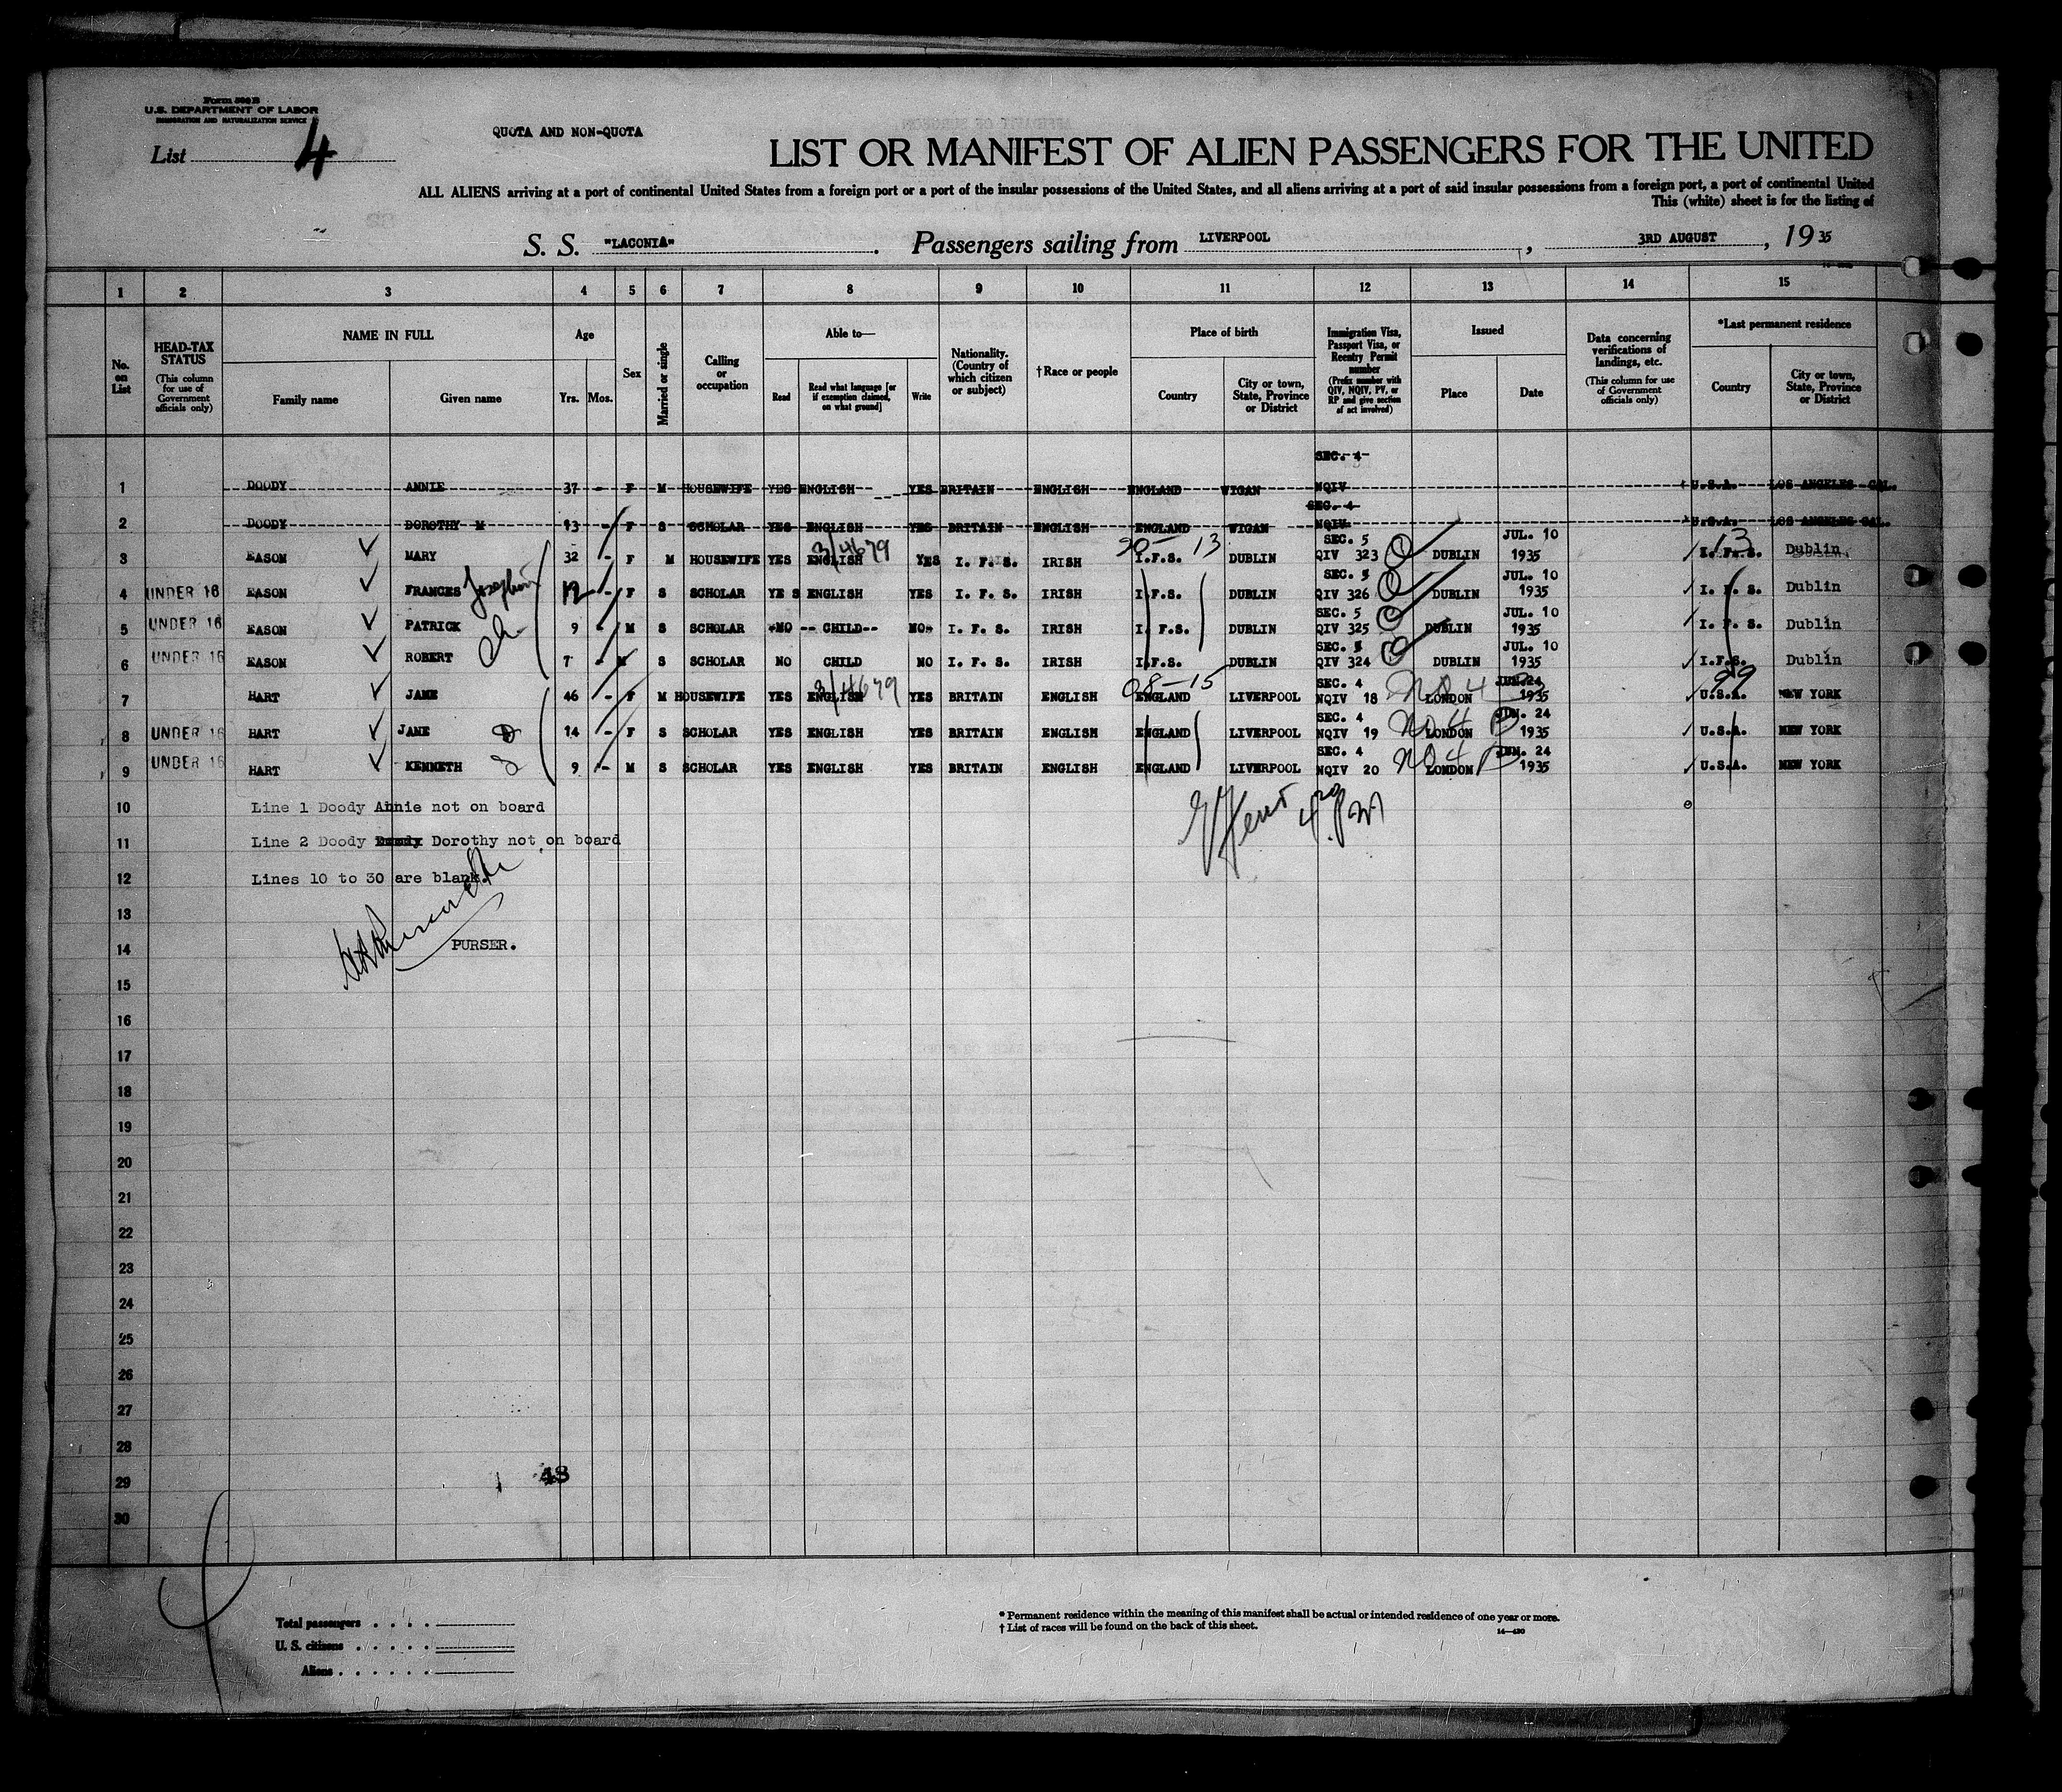 Form 500 B
U. S. DEPARTMENT OF LABOR
IMMIGRATION AND NATURALIZATION SERVICE
List 4
QUOTA AND NON-QUOTA
LIST OR MANIFEST OF ALIEN PASSENGERS FOR THE UNITED
ALL ALIENS arriving at a port of continental United States from a foreign port or a port of the insular possessions of the United States, and all aliens arriving at a port of said insular possessions from a foreign port, a port of continental United
This (white) sheet is for the listing of
S. S. "LACONIA". Passengers sailing from LIVERPOOL, 3RD AUGUST, 19 35
1 2 3 4 5 6 7 8 9 10 11 12 13 14 15
No. on List
HEAD-TAX STATUS (This column for use of Government officials only)
NAME IN FULL Family name Given name
Age Yrs. Mos.
Sex
Married or single
Calling or occupation
Able to— Read Read what language [or if exemption claimed, on what ground] Write
Nationality. (Country of which citizen or subject)
†Race or people
Place of birth Country City or town, State, Province or District
Immigration Visa, Passport Visa, or Reentry Permit number (Prefix number with QIV, NQIV, PV, or RP and give section of act involved)
Issued Place Date
Data concerning verifications of landings, etc. (This column for use of Government officials only)
*Last permanent residence Country City or town, State, Province or District
SEC. 4
1 DOODY ANNIE 37 - F M HOUSEWIFE YES ENGLISH YES BRITAIN ENGLISH ENGLAND WIGAN NQIV U.S.A. LOS ANGELES CAL.
SEC. 4
2 DOODY DOROTHY M 13 - F S SCHOLAR YES ENGLISH YES BRITAIN ENGLISH ENGLAND WIGAN NQIV U.S.A. LOS ANGELES CAL.
3/4679 20-13 SEC. 5 JUL. 10 13
3 EASON MARY 32 - F M HOUSEWIFE YES ENGLISH YES I. F. S. IRISH I.F.S. DUBLIN QIV 323 DUBLIN 1935 I.F.S. Dublin
SEC. 5 JUL. 10
4 UNDER 16 EASON FRANCES Josephine 12 - F S SCHOLAR YES ENGLISH YES I. F. S. IRISH I.F.S. DUBLIN QIV 326 DUBLIN 1935 I. F. S. Dublin
SEC. 5 JUL. 10
5 UNDER 16 EASON PATRICK 9 - M S SCHOLAR -NO -- CHILD-- NO- I. F. S. IRISH I. F.S. DUBLIN QIV 325 DUBLIN 1935 I. F. S. Dublin
SEC. 5 JUL. 10
6 UNDER 16 EASON ROBERT 7 - M S SCHOLAR NO CHILD NO I. F. S. IRISH I.F.S. DUBLIN QIV 324 DUBLIN 1935 I.F.S. Dublin
3/4679 08-15 SEC. 4 NO 4 JUN.24 99
7 HART JANE 46 - F M HOUSEWIFE YES ENGLISH YES BRITAIN ENGLISH ENGLAND LIVERPOOL NQIV 18 LONDON 1935 U.S.A. NEW YORK
SEC. 4 NO 4 JUN. 24
8 UNDER 16 HART JANE 14 - F S SCHOLAR YES ENGLISH YES BRITAIN ENGLISH ENGLAND LIVERPOOL NQIV 19 LONDON 1935 U.S.A. NEW YORK
SEC. 4 NO 4 JUN. 24
9 UNDER 16 HART KENNETH 9 - M S SCHOLAR YES ENGLISH YES BRITAIN ENGLISH ENGLAND LIVERPOOL NQIV 20 LONDON 1935 U.S.A. NEW YORK
10 Line 1 Doody Annie not on board
11 Line 2 Doody Dorothy not on board
12 Lines 10 to 30 are blank.
13
14 PURSER.
15
16
17
18
19
20
21
22
23
24
25
26
27
28
29 48
30
Total passengers . . . .
U. S. citizens . . . . .
Aliens . . . . . .
* Permanent residence within the meaning of this manifest shall be actual or intended residence of one year or more.
† List of races will be found on the back of this sheet.
14—430